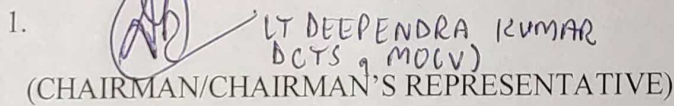 1.
LT DEEPENDRA KUMAR
DCTS, MOCV)
(CHAIRMAN/CHAIRMAN'S REPRESENTATIVE)